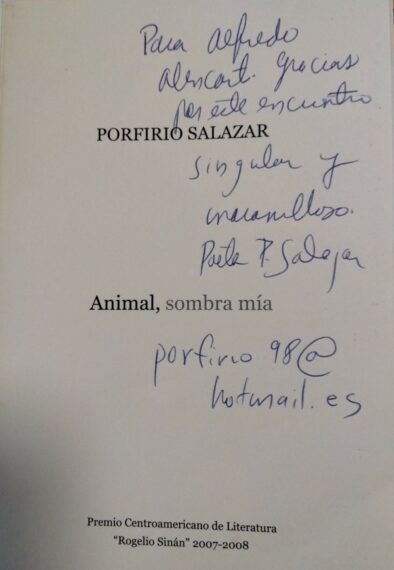 Para Alfredo
Alencart. Gracias
por este encuentro
PORFIRIO SALAZAR
singular y
maravilloso.
Poeta P. Salazar
Animal, sombra mía
porfirio 98@
hotmail.es
Premio Centroamericano de Literatura
"Rogelio Sinán" 2007-2008